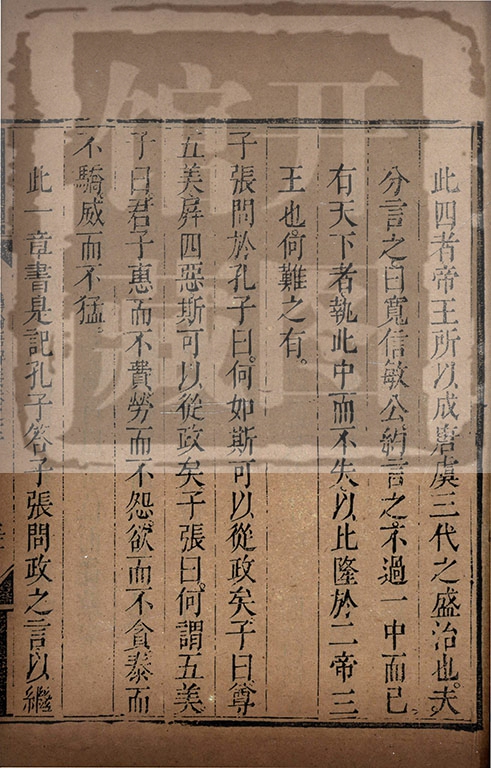 此四者帝王所以成唐虞三代之盛治也。夫
分言之曰寬信敏公約言之不過一中而已
有天下者執此中而不失以比隆於二帝三
王也。何難之有。
子張問於孔子曰。何如斯可以從政矣。子曰尊
五美屏四惡斯可以從政矣子張曰。何謂五美。
子曰君子惠而不費勞而不怨欲而不貪泰而
不驕威而不猛。
此一章書是記孔子答子張問政之言以繼
开
图
馆
藏